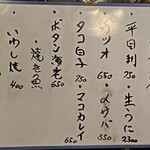 ・平目刺 750
・生うに 2300
・カツオ 650
・〆サバ 550
・タコ白子 750
・マコカレイ 650
・ボタン海老 650
・焼き魚
いわし焼 400